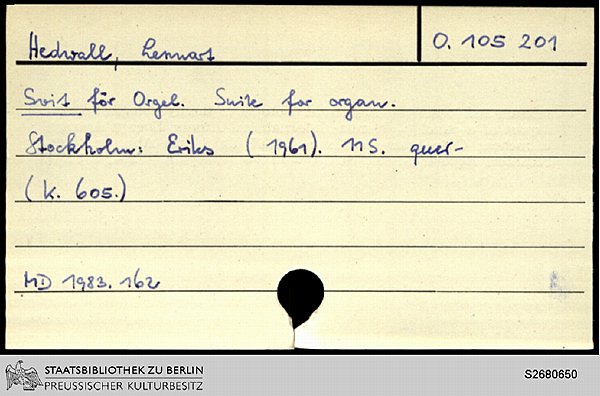 Hedwall, Lennart
O. 105 201
Svit för Orgel. Suite for organ.
Stockholm: Eriks (1961). 11 S. quer-
(K. 605.)
MD 1983. 162
STAATSBIBLIOTHEK ZU BERLIN
PREUSSISCHER KULTURBESITZ
S2680650